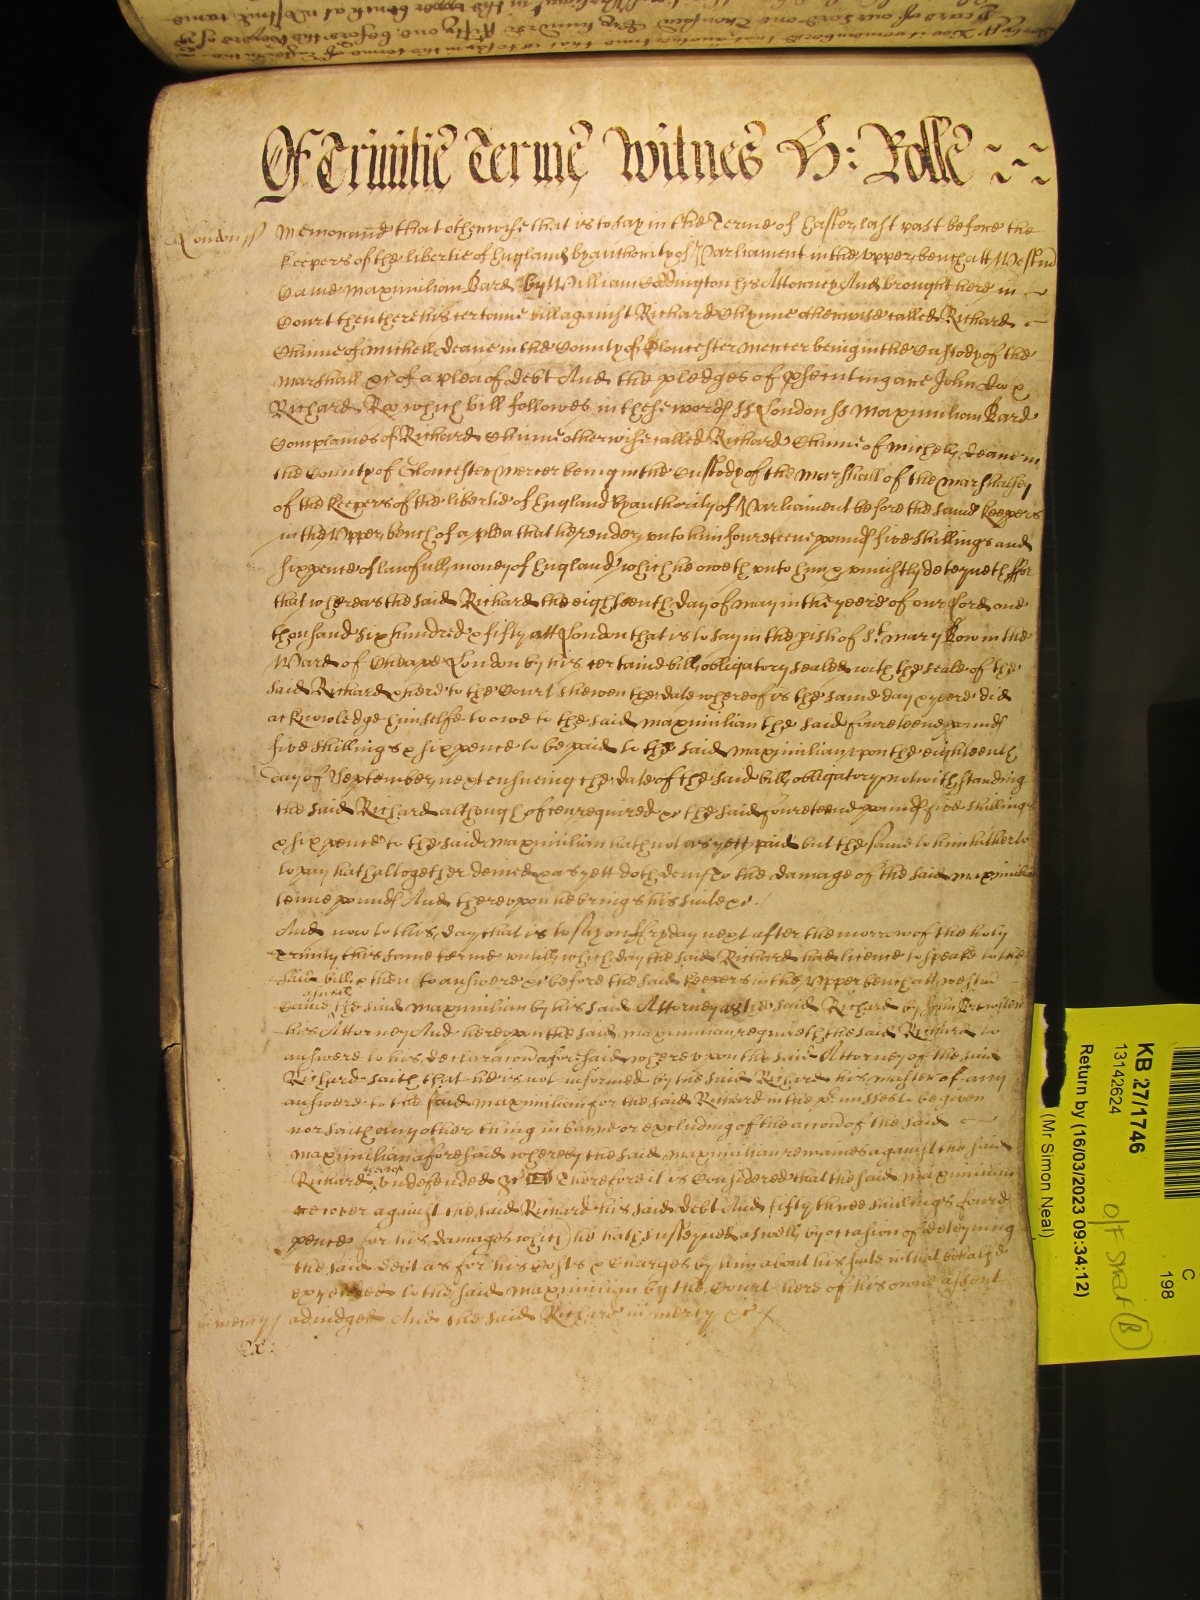 Of Trinitie Terme Witnes H: Rolle
London ss Memorand that otherwise that is to say in the Terme of Easter last past before the
Keepers of the libertie of England by authority of Parliament in the upper bench att Westm
Came Maximilian Bard by William Coddington his Attorney And brought here in
Court then there his certaine bill against Richard Chinne otherwise called Richard
Chinne of Michell deane in the County of Gloucester Mercer being in the Custody of the
Marshall &c of a plea of debt And the pledges of psecuting are John Doo &
Richard Roo which bill followes in these words ss London ss Maximilian Bard
Complaines of Richard Chinne otherwise called Richard Chinne of Michell deane in
the County of Gloucester Mercer being in the Custody of the Marshall of the Marshalsey
of the Keepers of the libertie of England by authority of Parliament before the same Keepers
in the Upper bench of a plea that he render unto him fourteene pounds five shillings and
sixpence of lawfull money of England which he oweth unto him & uniustly deteyneth ffor
that whereas the said Richard the eighteenth day of May in the yeere of our Lord one
thousand six hundred & fifty att London that is to say in the pish of St Mary Bow in the
Ward of Cheape London by his certaine bill obligatory sealed with the seale of the
said Richard & here to the Court shewen the date whereof is the same day & yeere did
acknowledge himselfe to owe to the said Maximilian the said fourteene pounds
five shillings & sixpence to be paid to the said Maximilian upon the eighteenth
day of September next ensueing the date of the said bill obligatory notwithstanding
the said Richard although often required &c the said fourteene pounds five shillings
& sixpence to the said Maximilian hath not as yett paid but the same to him hitherto
to pay hath altogether denied & as yett doth deny To the damage of the said Maximilian
tenne pounds And thereupon he brings his suite &c.
And now to this day that is to say on ffryday next after the morrow of the holy
Trinity this same terme untill which day the said Richard had licence to speake to the
said bill & then to answere &c before the said Keepers in the Upper bench att Westm
Came aswell the said Maximilian by his said Attorney as the said Richard by John
his Attorney And hereupon the said Maximilian requireth the said Richard to
answere to his declaracon aforesaid whereupon the said Attorney of the said
Richard saith that he is not informed by the said Richard his master of any
answere to the said Maximilian for the said Richard in the pmisses to be given
nor saith any other thing in barre or excluding of the accon of the said
Maximilian aforesaid whereby the said Maximilian remaines against the said
Richard undefended &c Therefore it is Considered that the said Maximilian
recover against the said Richard his said debt And fifty three shillings foure
pence for his damages which he hath susteyned aswell by occasion of deteyning
the said debt as for his Costs & Charges by him about his suite in that behalfe
expended to the said Maximilian by the Court here of his owne assent
in mercy adiudged And the said Richard in mercy &c
KB 27/1746
13142624
Return by (16/03/2023 09:34:12)
(Mr Simon Neal)
C
198